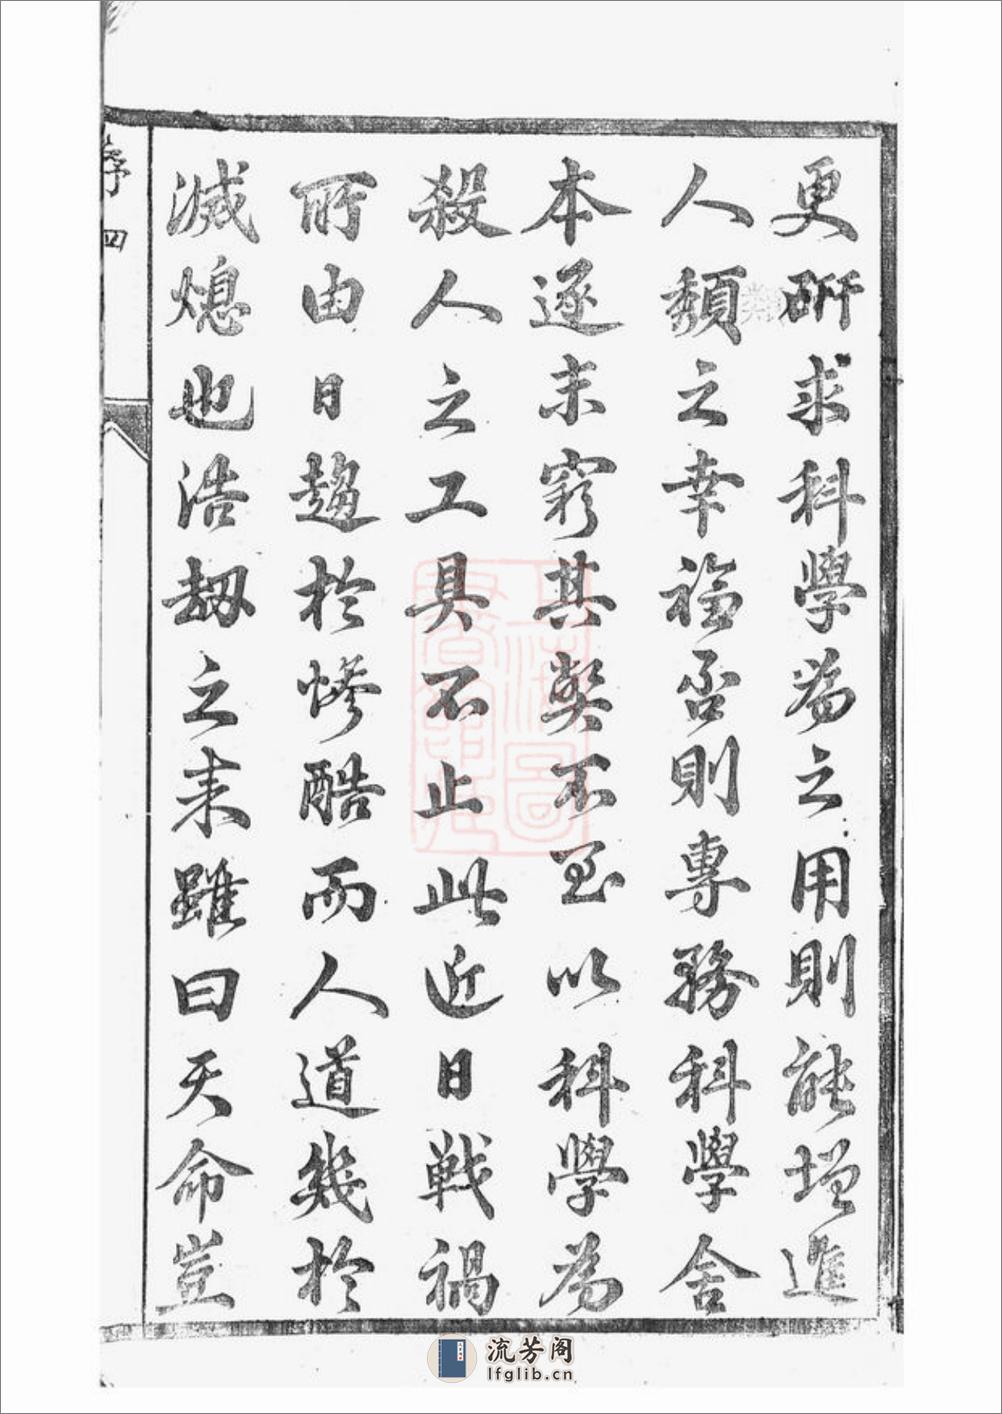 更研求科學為之用則能增進
人類之幸福否則專務科學舍
本逐末窮其弊不至以科學為
殺人之工具不止此近日戰禍
所由日趨於慘酷而人道幾於
滅熄也浩劫之来雖曰天命豈
序 四
流芳阁
lfglib.cn